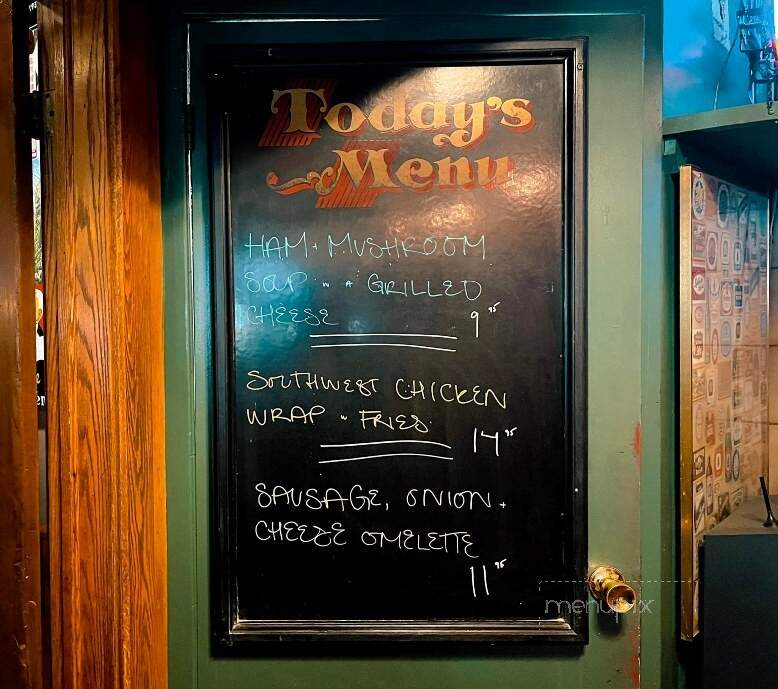 Today's
Menu
HAM + MUSHROOM
SOUP W A GRILLED
CHEESE 9 95
SOUTHWEST CHICKEN
WRAP W FRIES 14 95
SAUSAGE, ONION +
CHEEZE OMELETTE
11 95
menupix